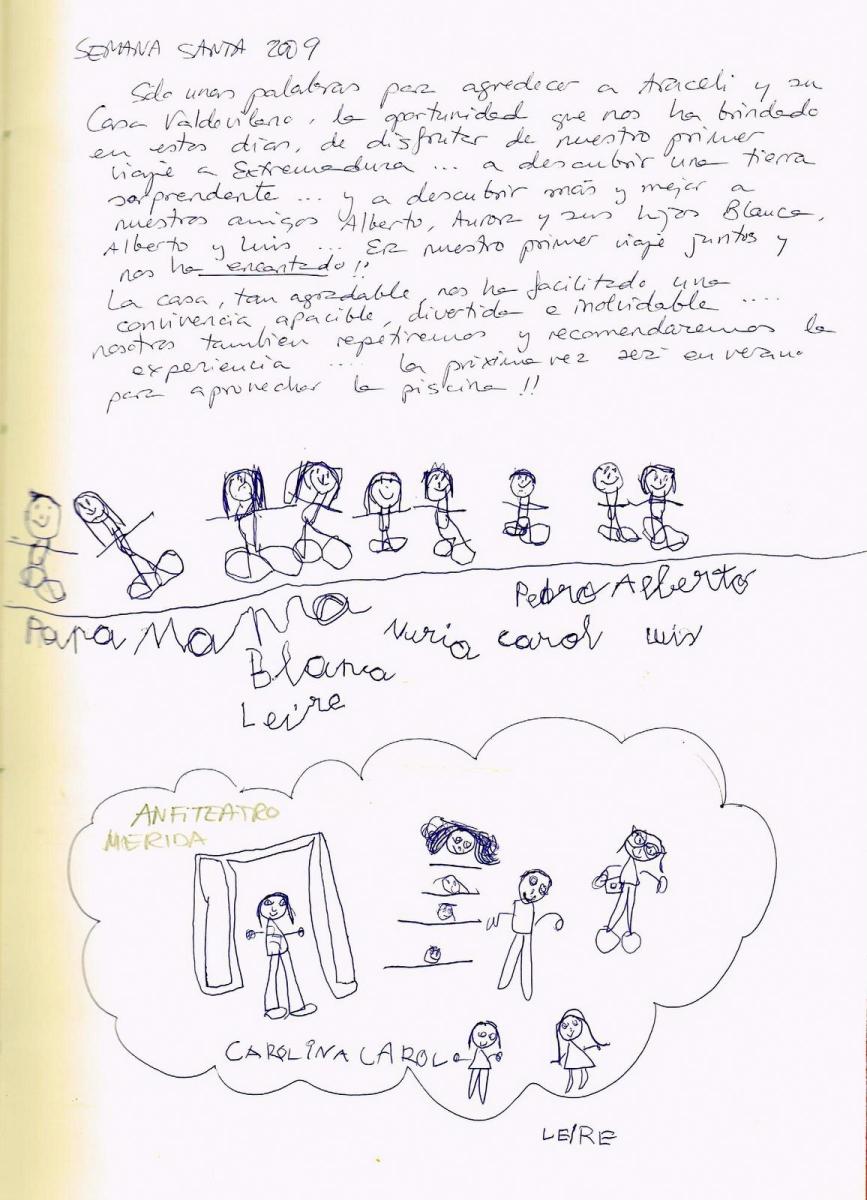 SEMANA SANTA 2009
Sólo unas palabras para agradecer a Araceli y su
Casa Valdovilano, la oportunidad que nos ha brindado
en estos días, de disfrutar de nuestro primer
viaje a Extremadura ... a descubrir una tierra
sorprendente ... y a descubrir más y mejor a
nuestros amigos Alberto, Aurora y sus hijos Blanca,
Alberto y Luis ... Era nuestro primer viaje juntos y
nos ha encantado!!
La casa, tan agradable, nos ha facilitado una
convivencia apacible, divertida e inolvidable ....
nosotros también repetiremos y recomendaremos la
experiencia .... la próxima vez será en verano
para aprovechar la piscina!!
Pedro Alberto
Papa MaMa Nuria Carol Luis
Blanca
Leire
ANFITEATRO
MERIDA
CAROLINA CAROL
LEIRE